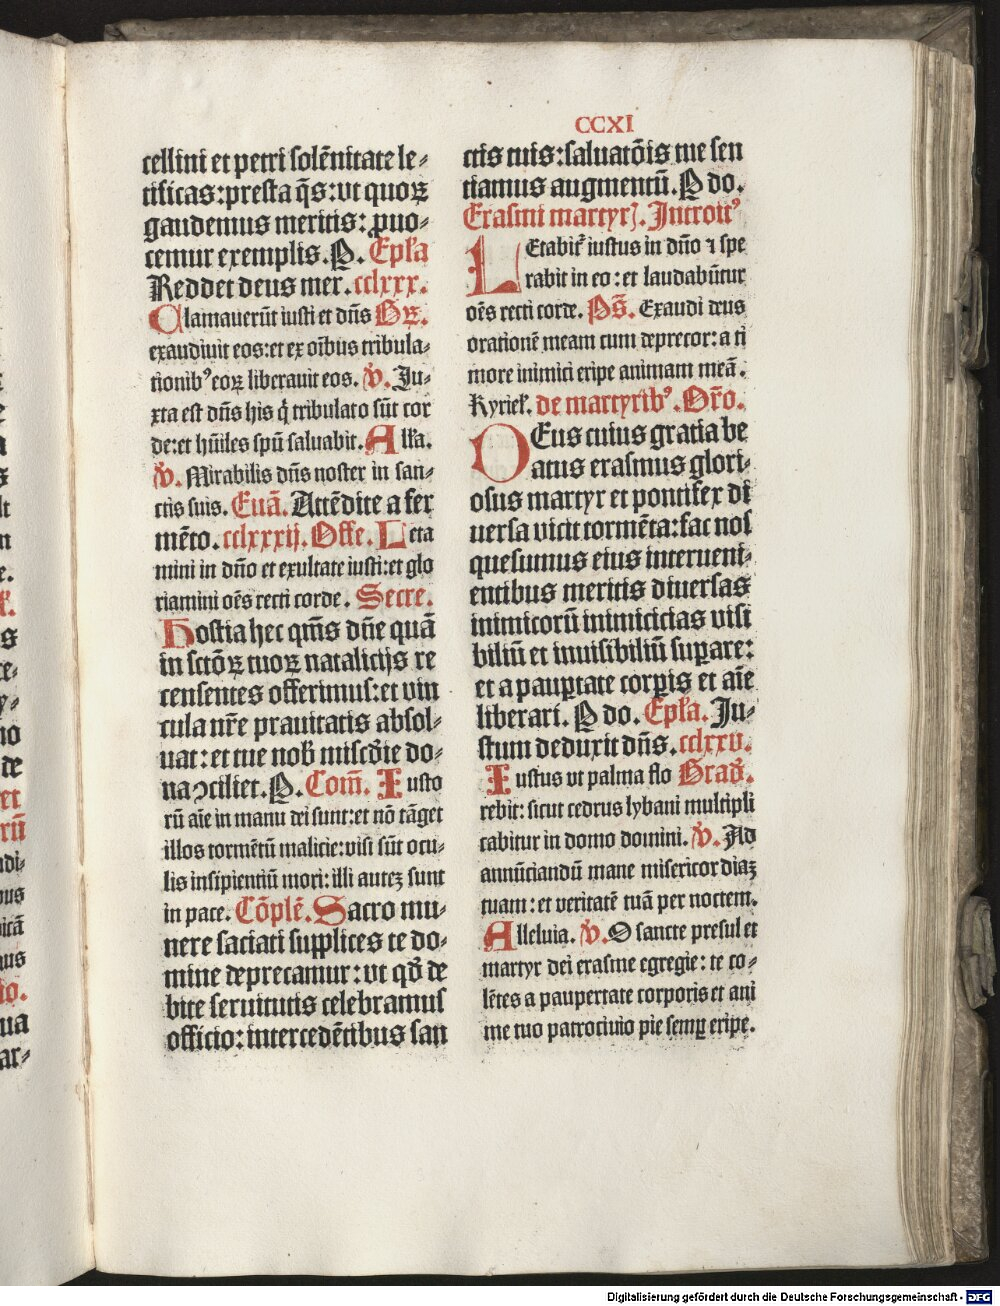 CCXI
cellini et petri solēnitate le-
tificas: presta q̄s: vt quoꝝ
gaudemus meritis: ꝓuo-
cemur exemplis. P. Ep̄la
Reddet deus mer. cclxxx.
Clamauerūt iusti et dn̄s Gꝝ.
exaudiuit eos: et ex oībus tribula-
tionibꝰ eoꝝ liberauit eos. v̄. Ju-
xta est dn̄s his q̄ tribulato sūt cor
de: et hūiles spū saluabit. Alla.
v̄. Mirabilis dn̄s noster in san-
ctis suis. Euā. Attēdite a fer
mēto. cclxxxij. Offe. Leta
mini in dn̄o et exultate iusti: et glo
riamini oēs recti corde. Secre.
Hostia hec qm̄s dn̄e quā
in sctōꝝ tuoꝝ natalicijs re
censentes offerimus: et vin
cula nr̄e prauitatis absol-
uat: et tue nob̄ misc̄die do-
na ↄciliet. P. Com̄. Iusto
rū aīe in manu dei sunt: et nō tāget
illos tormētū malicie: visi sūt ocu-
lis insipientiū mori: illi autēꝫ sunt
in pace. Cōplē. Sacro mu-
nere saciati supplices te do-
mine deprecamur: vt qd̄ de
bite seruitutis celebramus
officio: intercedētibus san
ctis tuis: saluatōis tue sen
tiamus augmentū. P do.
Erasmi martyrꝭ. Introitꝰ
LEtabit᷑ iustus in dn̄o ⁊ spe
rabit in eo: et laudabūtur
oēs recti corde. Ps̄. Exaudi deus
orationē meam cum deprecor: a ti
more inimici eripe animam meā.
Kyriel̄. de martyribꝰ. Or̄o.
DEus cuius gratia be
atus erasmus glori-
osus martyr et pontifex di
uersa vicit tormēta: fac nos
quesumus eius interueni-
entibus meritis diuersas
inimicorū inimicicias visi
biliū et inuisibiliū suꝑare:
et a pauꝑtate corꝑis et aīe
liberari. P do. Ep̄la. Ju-
stum deduxit dn̄s. cclxxv.
Iustus vt palma flo Grad̄.
rebit: sicut cedrus lybani multipli
cabitur in domo domini. v̄. Ad
annūciandū mane misericordiaꝫ
tuam: et veritatē tuā per noctem.
Alleluia. v̄. O sancte presul et
martyr dei erasme egregie: te co-
lētes a paupertate corporis et ani
me tuo patrocinio pie semꝑ eripe.
Digitalisierung gefördert durch die Deutsche Forschungsgemeinschaft - DFG